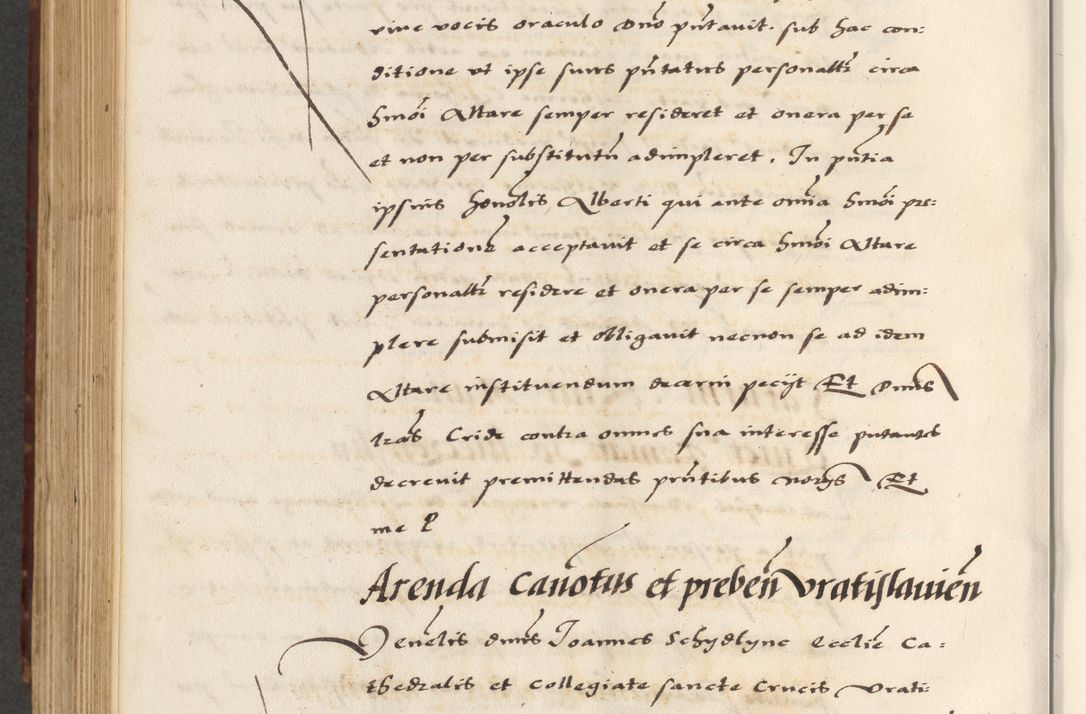 vive vocis oraculo Dno pñtavit. sub hac con:
ditione ut ipse suus pñtatus personaltr circa
hmõi Altare semper resideret et onera per se
et non per substitutũ adimpleret. In pñtia
ipsius honolis Alberti qui ante omia hmõi pre:
sentationẽ acceptavit et se circa hmõi Altare
personaltr residere et onera per se semper adim:
plere submisit et obligavit necnon se ad idem
Altare instituendum decerni pecijt Et Dnus
lrãs Cride contra omnes sua interesse putantes
decrevit premittendas pñtibus Et
me P
Arenda Canõtus et prebeñ Vratislavieñ
Venelis dnus Joannes Schydlyne Ecclie Ca:
thedralis et Collegiate sancte Crucis Vrati: